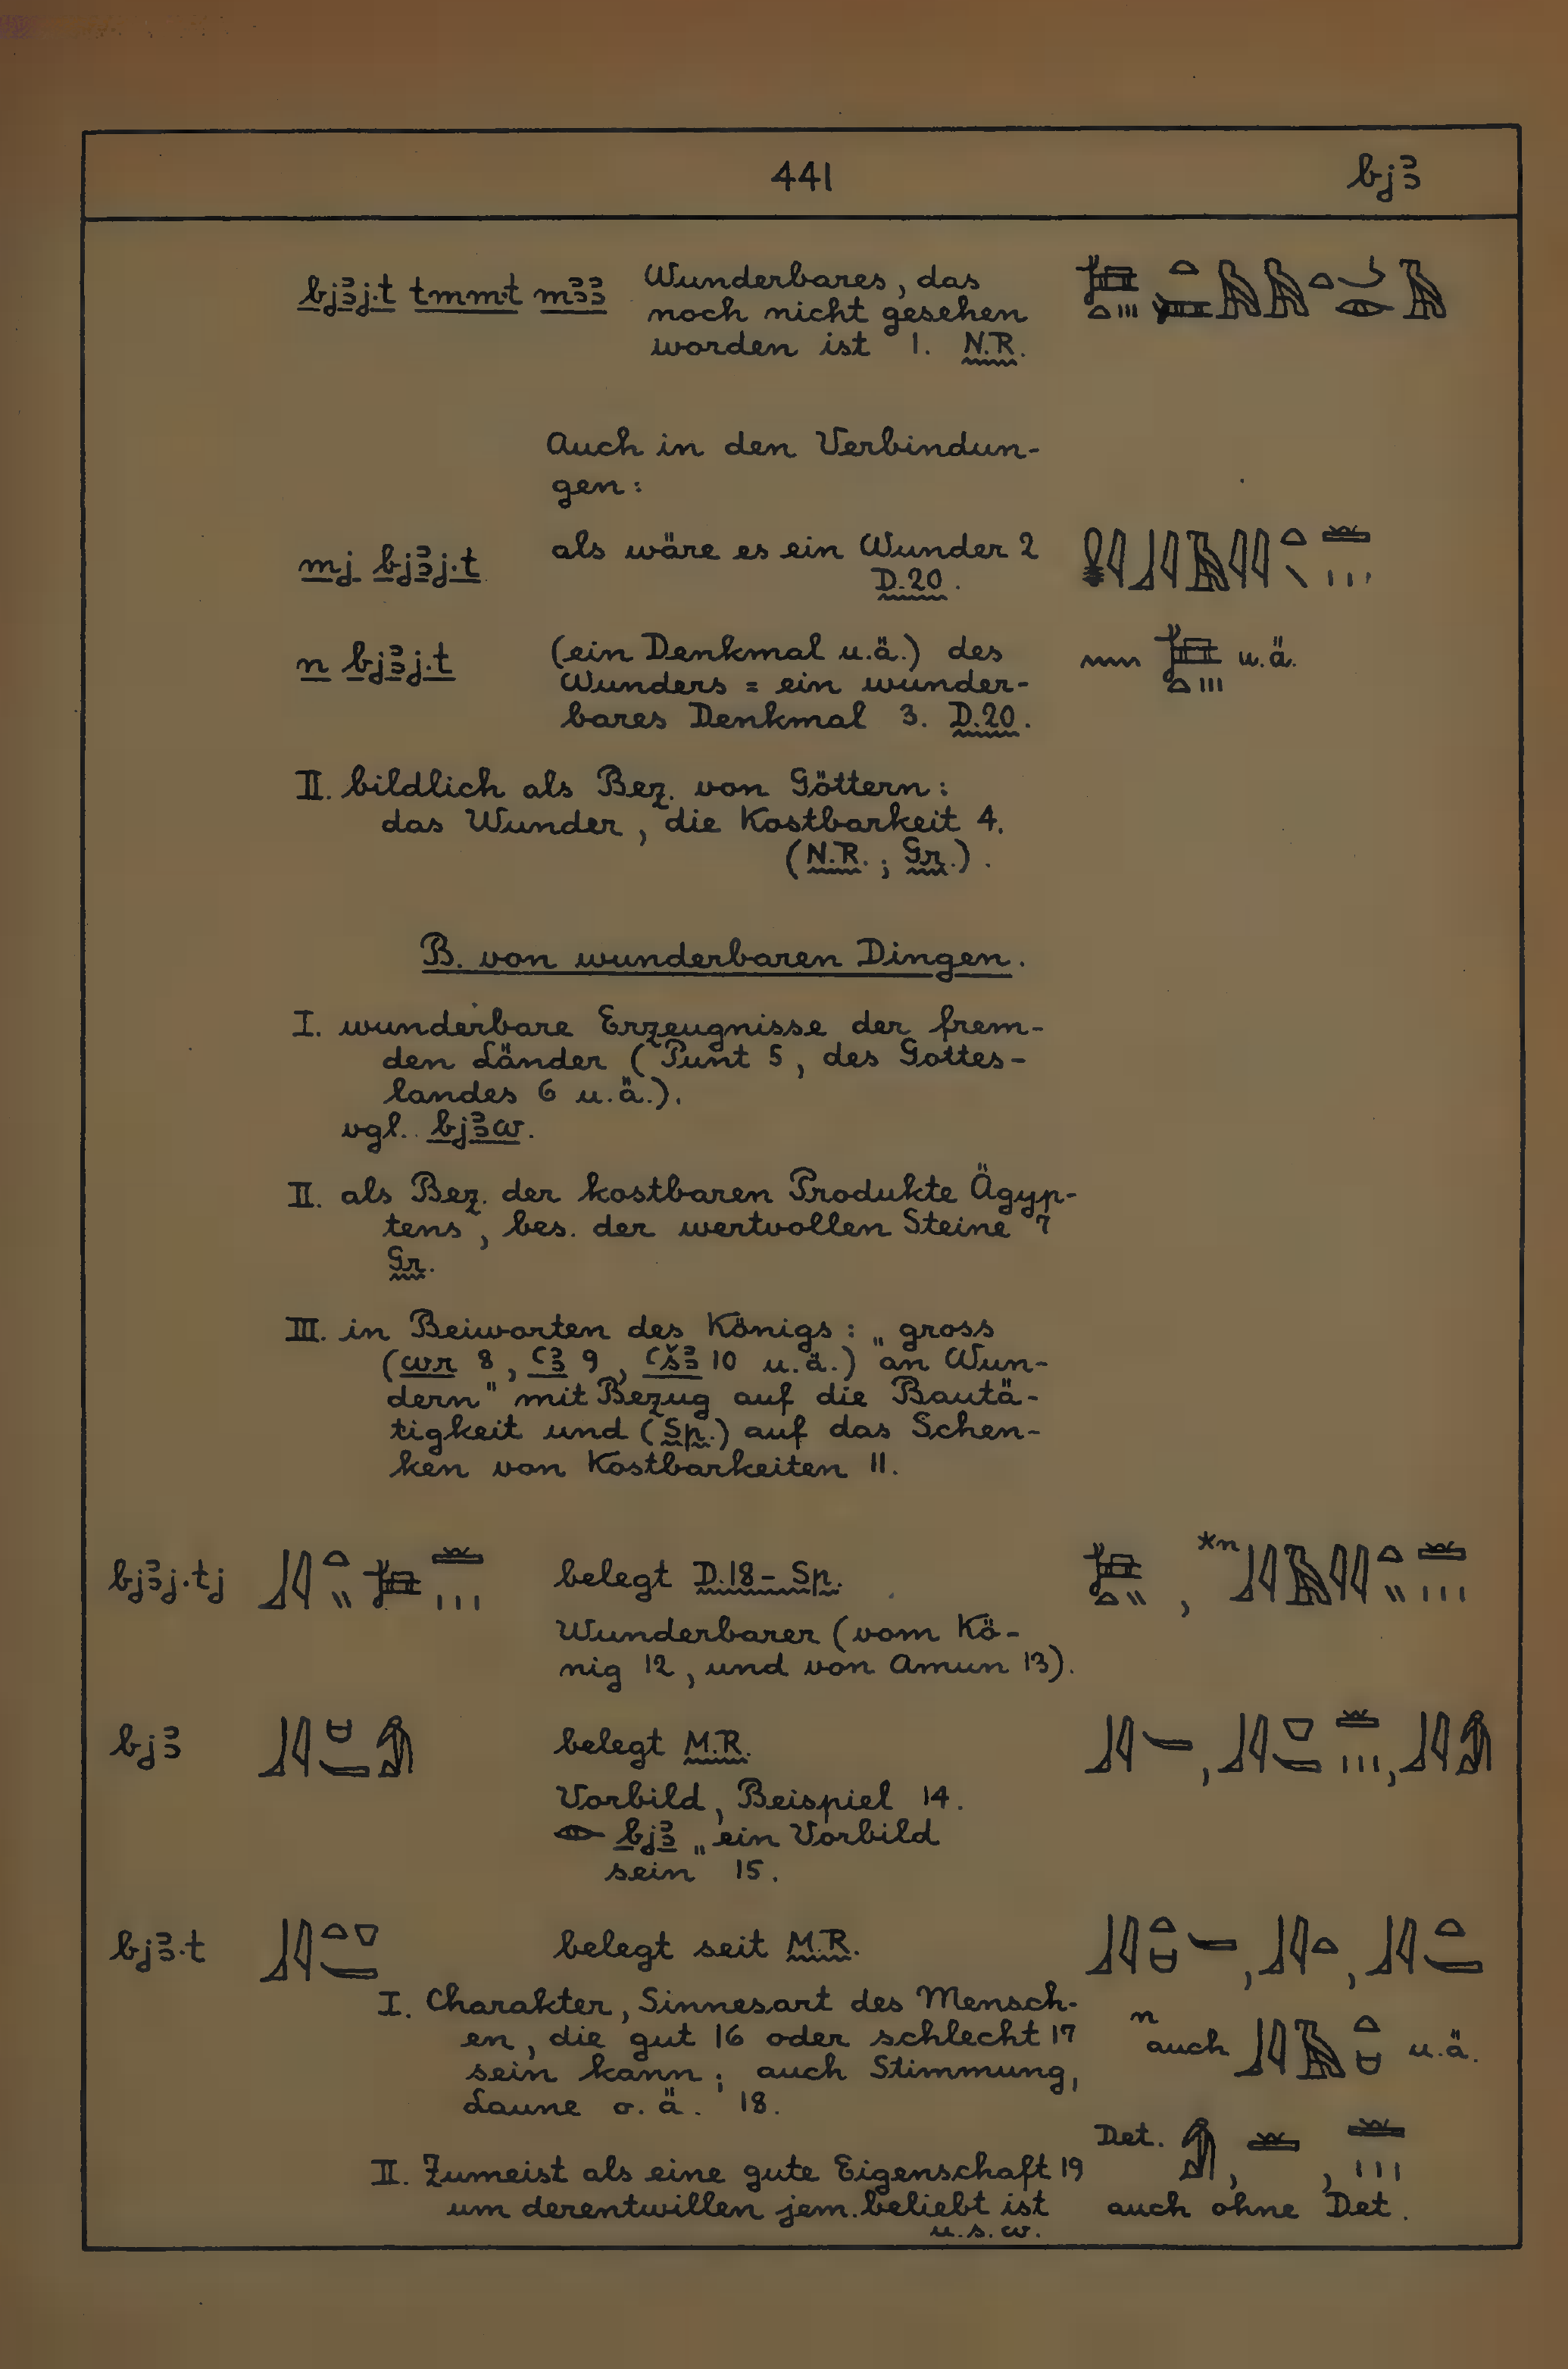 441 bjꜣ
bjꜣj.t tmm.t mꜣꜣ Wunderbares, das
noch nicht gesehen
worden ist 1. N.R.
Auch in den Verbindun-
gen:
mj bjꜣj.t als wäre es ein Wunder 2
D.20.
n bjꜣj.t (ein Denkmal u.ä.) des u.ä.
Wunders = ein wunder-
bares Denkmal 3. D.20.
II. bildlich als Bez. von Göttern:
das Wunder, die Kostbarkeit 4.
(N.R.; Gr.).
B. von wunderbaren Dingen.
I. wunderbare Erzeugnisse der frem-
den Länder (Punt 5, des Gottes-
landes 6 u.ä.).
vgl. bjꜣw.
II. als Bez. der kostbaren Produkte Ägyp-
tens, bes. der wertvollen Steine 7
Gr.
III. in Beiworten des Königs: „gross
(wr 8, ꜥꜣ 9, ꜥšꜣ 10 u.ä.) an Wun-
dern" mit Bezug auf die Bautä-
tigkeit und (Sp.) auf das Schen-
ken von Kostbarkeiten 11.
bjꜣj.tj belegt D.18 - Sp. , *n
Wunderbarer (vom Kö-
nig 12, und von Amun 13).
bjꜣ belegt M.R.
Vorbild, Beispiel 14.
bjꜣ „ein Vorbild
sein" 15.
bjꜣ.t belegt seit M.R.
I. Charakter, Sinnesart des Mensch-
en, die gut 16 oder schlecht 17
sein kann; auch Stimmung,
Laune o.ä. 18.
n
auch u.ä.
Det.
II. Zumeist als eine gute Eigenschaft 19
um derentwillen jem. beliebt ist
u.s.w.
auch ohne Det.